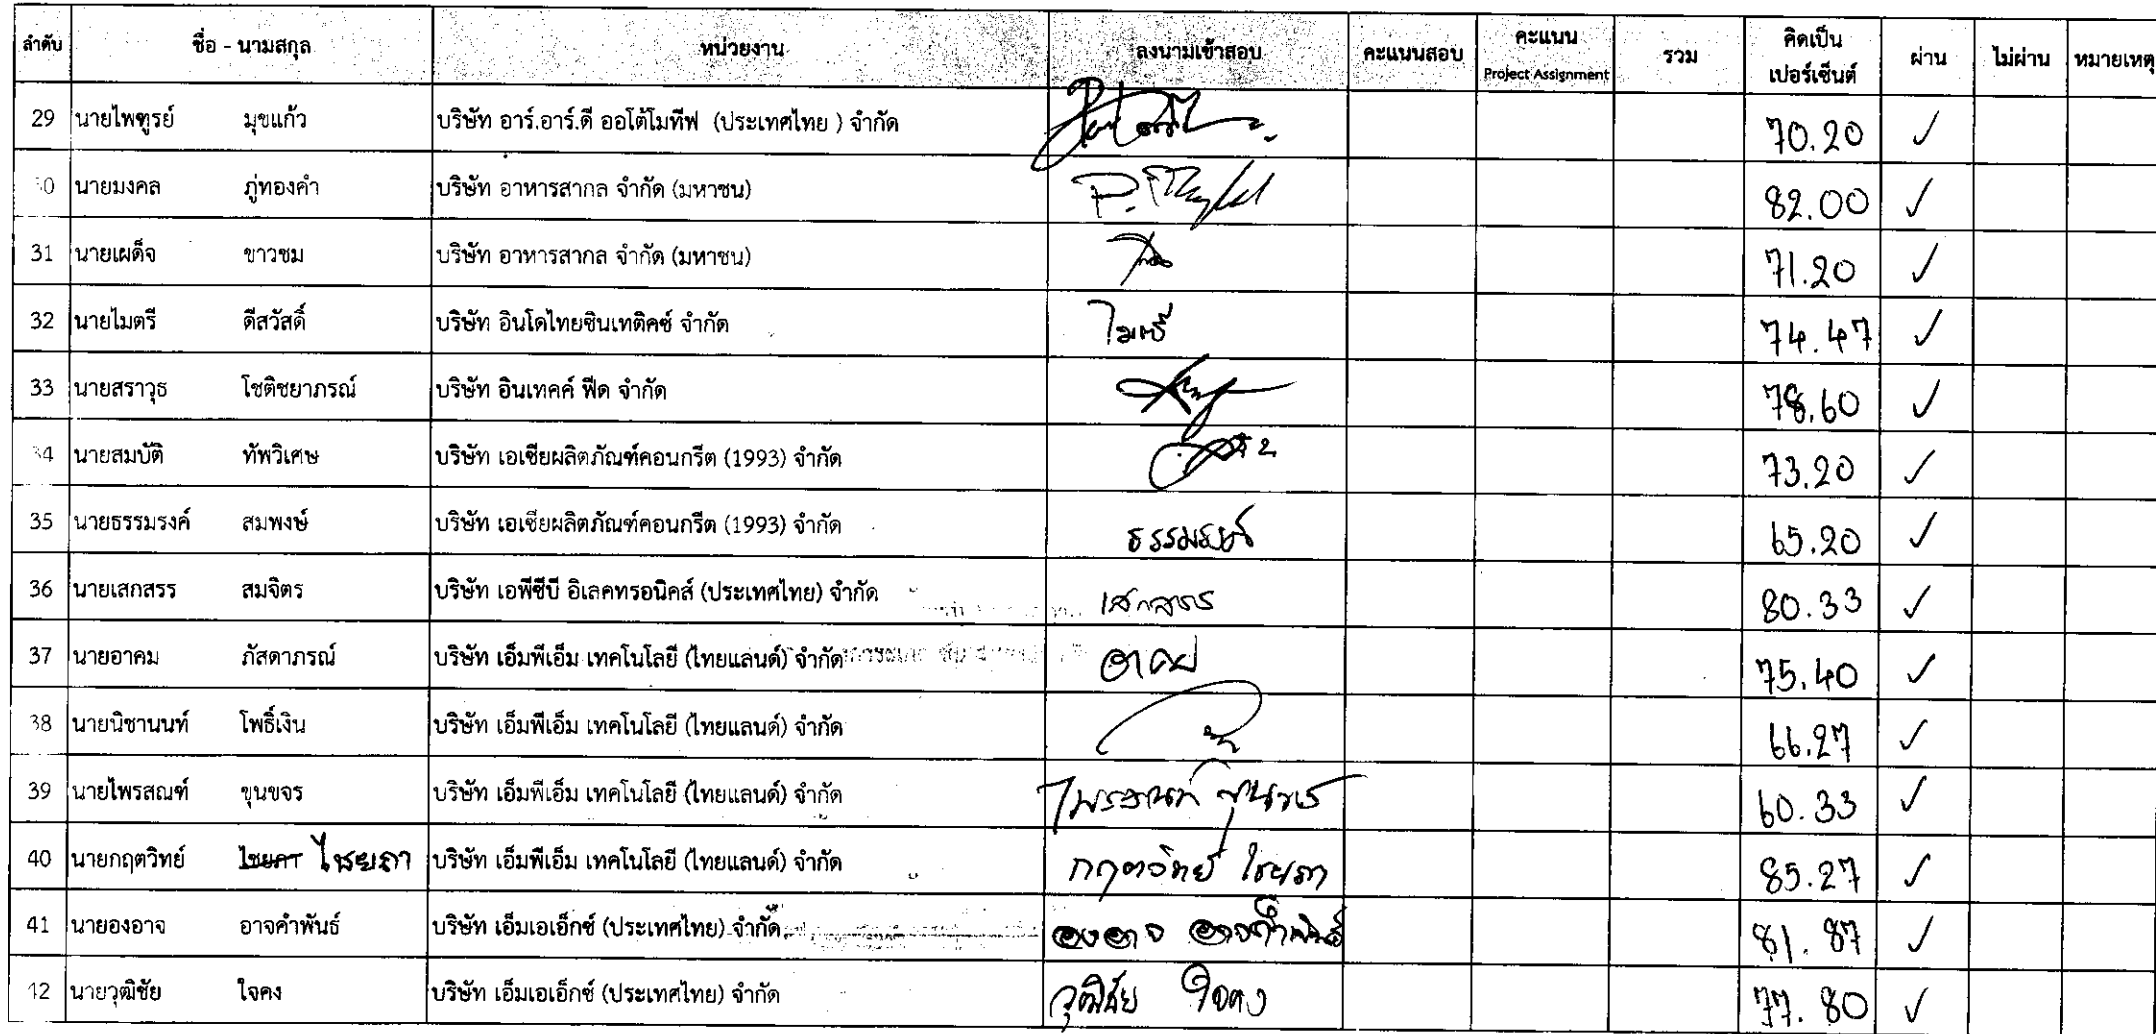 ลำดับ ชื่อ - นามสกุล หน่วยงาน ลงนามเข้าสอบ คะแนนสอบ คะแนน Project Assignment รวม คิดเป็น เปอร์เซ็นต์ ผ่าน ไม่ผ่าน หมายเหตุ
29 นายไพฑูรย์ มุขแก้ว บริษัท อาร์.อาร์.ดี ออโต้โมทีฟ (ประเทศไทย ) จำกัด 70.20 ✓
30 นายมงคล ภู่ทองคำ บริษัท อาหารสากล จำกัด (มหาชน) 82.00 ✓
31 นายเผด็จ ขาวชม บริษัท อาหารสากล จำกัด (มหาชน) 71.20 ✓
32 นายไมตรี ดีสวัสดิ์ บริษัท อินโดไทยซินเทติคซ์ จำกัด ไมตรี 74.47 ✓
33 นายสราวุธ โชติชยาภรณ์ บริษัท อินเทคค์ ฟีด จำกัด 78.60 ✓
34 นายสมบัติ ทัพวิเศษ บริษัท เอเชียผลิตภัณฑ์คอนกรีต (1993) จำกัด 73.20 ✓
35 นายธรรมรงค์ สมพงษ์ บริษัท เอเชียผลิตภัณฑ์คอนกรีต (1993) จำกัด ธรรมรงค์ 65.20 ✓
36 นายเสกสรร สมจิตร บริษัท เอพีซีบี อิเลคทรอนิคส์ (ประเทศไทย) จำกัด เสกสรร 80.33 ✓
37 นายอาคม ภัสดาภรณ์ บริษัท เอ็มพีเอ็ม เทคโนโลยี (ไทยแลนด์) จำกัด อาคม 75.40 ✓
38 นายนิชานนท์ โพธิ์เงิน บริษัท เอ็มพีเอ็ม เทคโนโลยี (ไทยแลนด์) จำกัด 66.27 ✓
39 นายไพรสณฑ์ ขุนขจร บริษัท เอ็มพีเอ็ม เทคโนโลยี (ไทยแลนด์) จำกัด ไพรสณฑ์ ขุนขจร 60.33 ✓
40 นายกฤตวิทย์ ไชยภา ไชยภา บริษัท เอ็มพีเอ็ม เทคโนโลยี (ไทยแลนด์) จำกัด กฤตวิทย์ ไชยภา 85.27 ✓
41 นายองอาจ อาจคำพันธ์ บริษัท เอ็มเอเอ็กซ์ (ประเทศไทย) จำกัด องอาจ อาจคำพันธ์ 81.87 ✓
42 นายวุฒิชัย ใจคง บริษัท เอ็มเอเอ็กซ์ (ประเทศไทย) จำกัด วุฒิชัย ใจคง 77.80 ✓